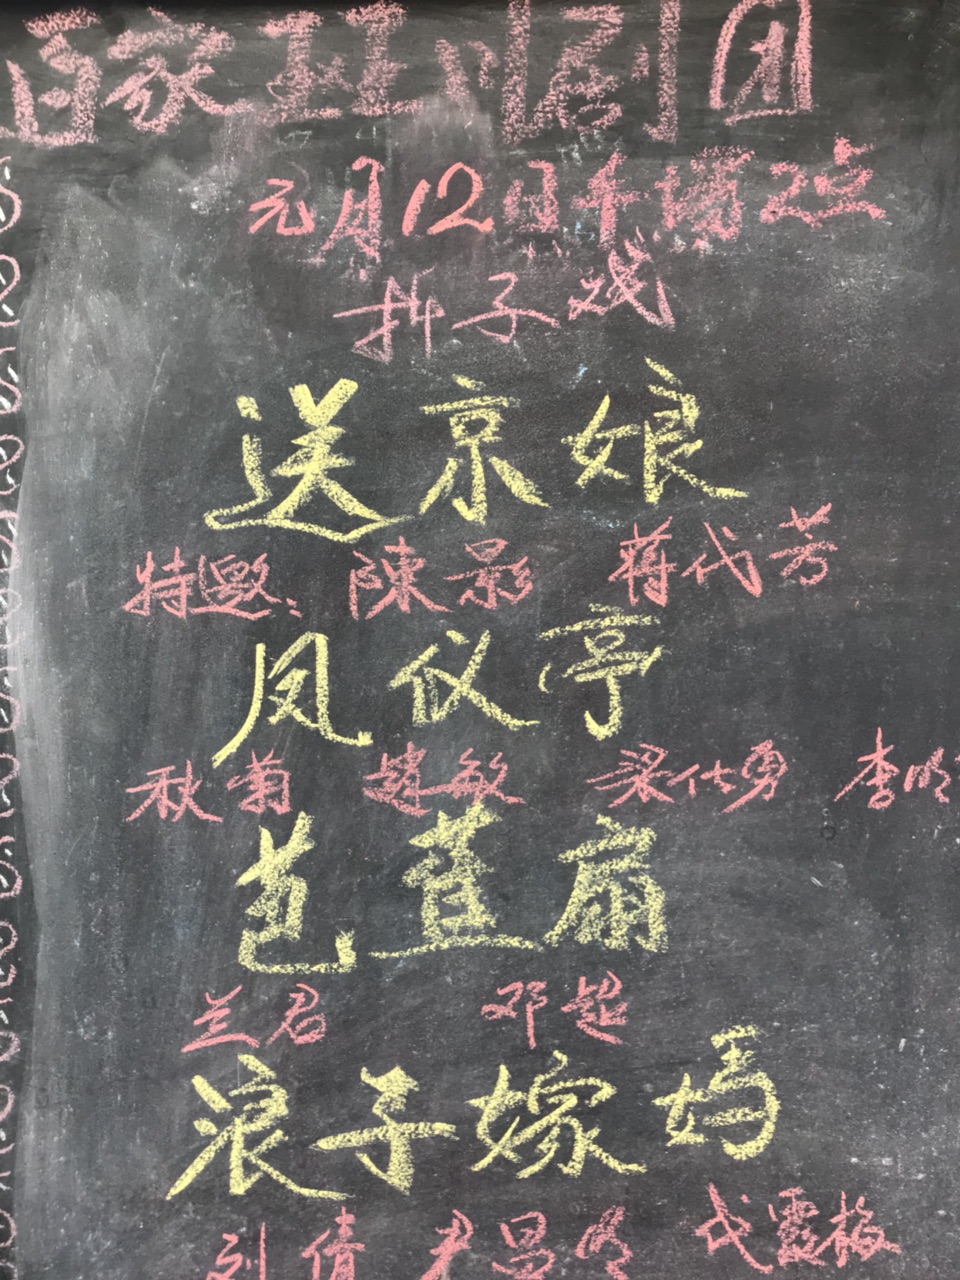 百家班川剧团
元月12日午場2点
折子戏
送京娘
特邀: 陳影 蒋代芳
凤仪亭
秋菊 趙敏 梁仕勇 李
芭蕉扇
兰君 邓超
浪子嫁妈
刘倩 昌 代霞梅